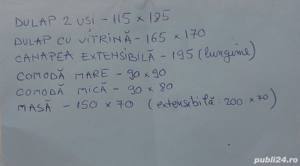 DULAP 2 UȘI - 115 x 185
DULAP CU VITRINĂ - 165 x 170
CANAPEA EXTENSIBILĂ - 195 (lungime)
COMODĂ MARE - 90 x 90
COMODĂ MICĂ - 90 x 80
MASĂ - 150 x 70 (extensibilă: 200 x 70)
publi24.ro